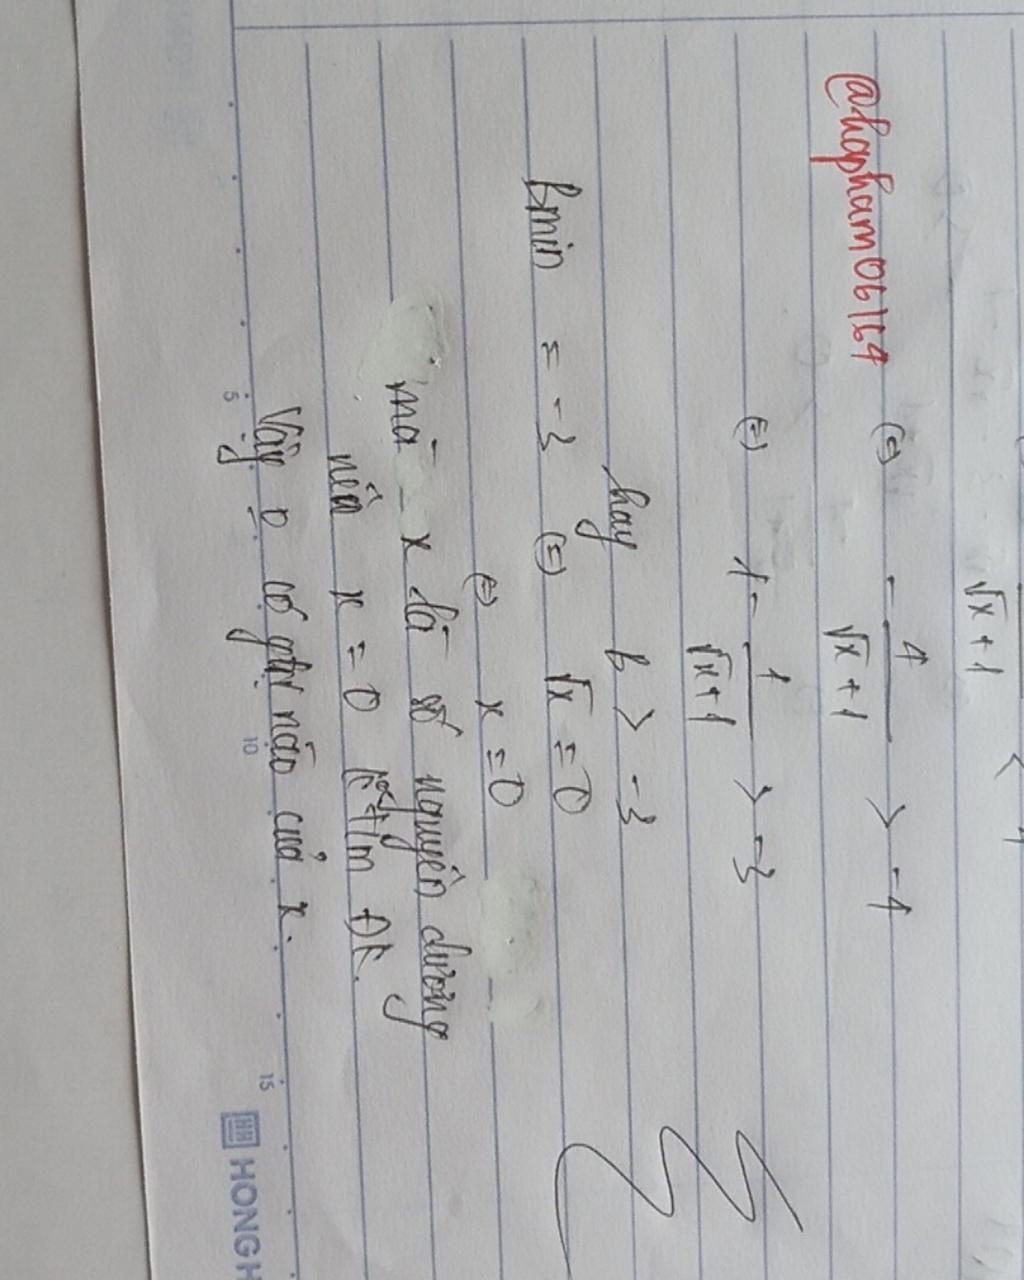 √x + 1
@hapham06164
(=) - 4/(√x + 1) > -4
(=) 1 - 4/(√x + 1) > -3
hay B > -3
Bmin = -3 (=) √x = 0
(=) x = 0
mà x là số nguyên dương
nên x = 0 ko t/m ĐK.
Vậy ko có gtri nào của x.
5 10 15
HONG H